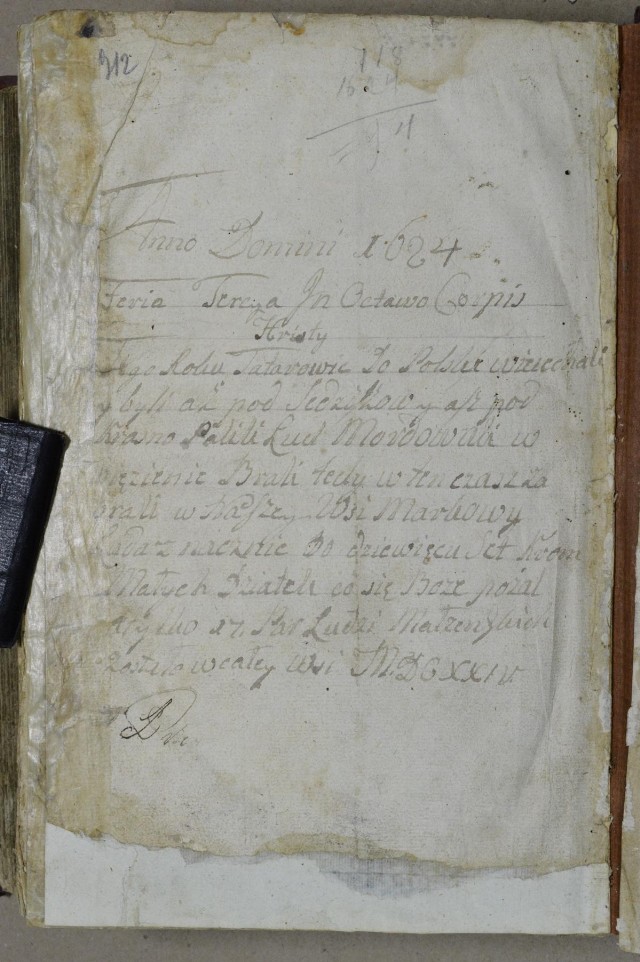 312
118
1624
Anno Domini 1624
Feria Tercya In Octawo Corpis
Hristy
Tego Roku Tatarowie Do Polski wiechali
y byli aż pod y aż pod
Krosno Palili Lud Mordowali w
więzienie Brali tedy w ten czas za
brali w naszey Wsi Markowy
Ludaz nacznie do dziewięcu Set Krom
Małych Dziatek co się Boze pożal
tylko 17 Par Ludzi Małzenskich
zostało w całey Wsi MDCXXIV